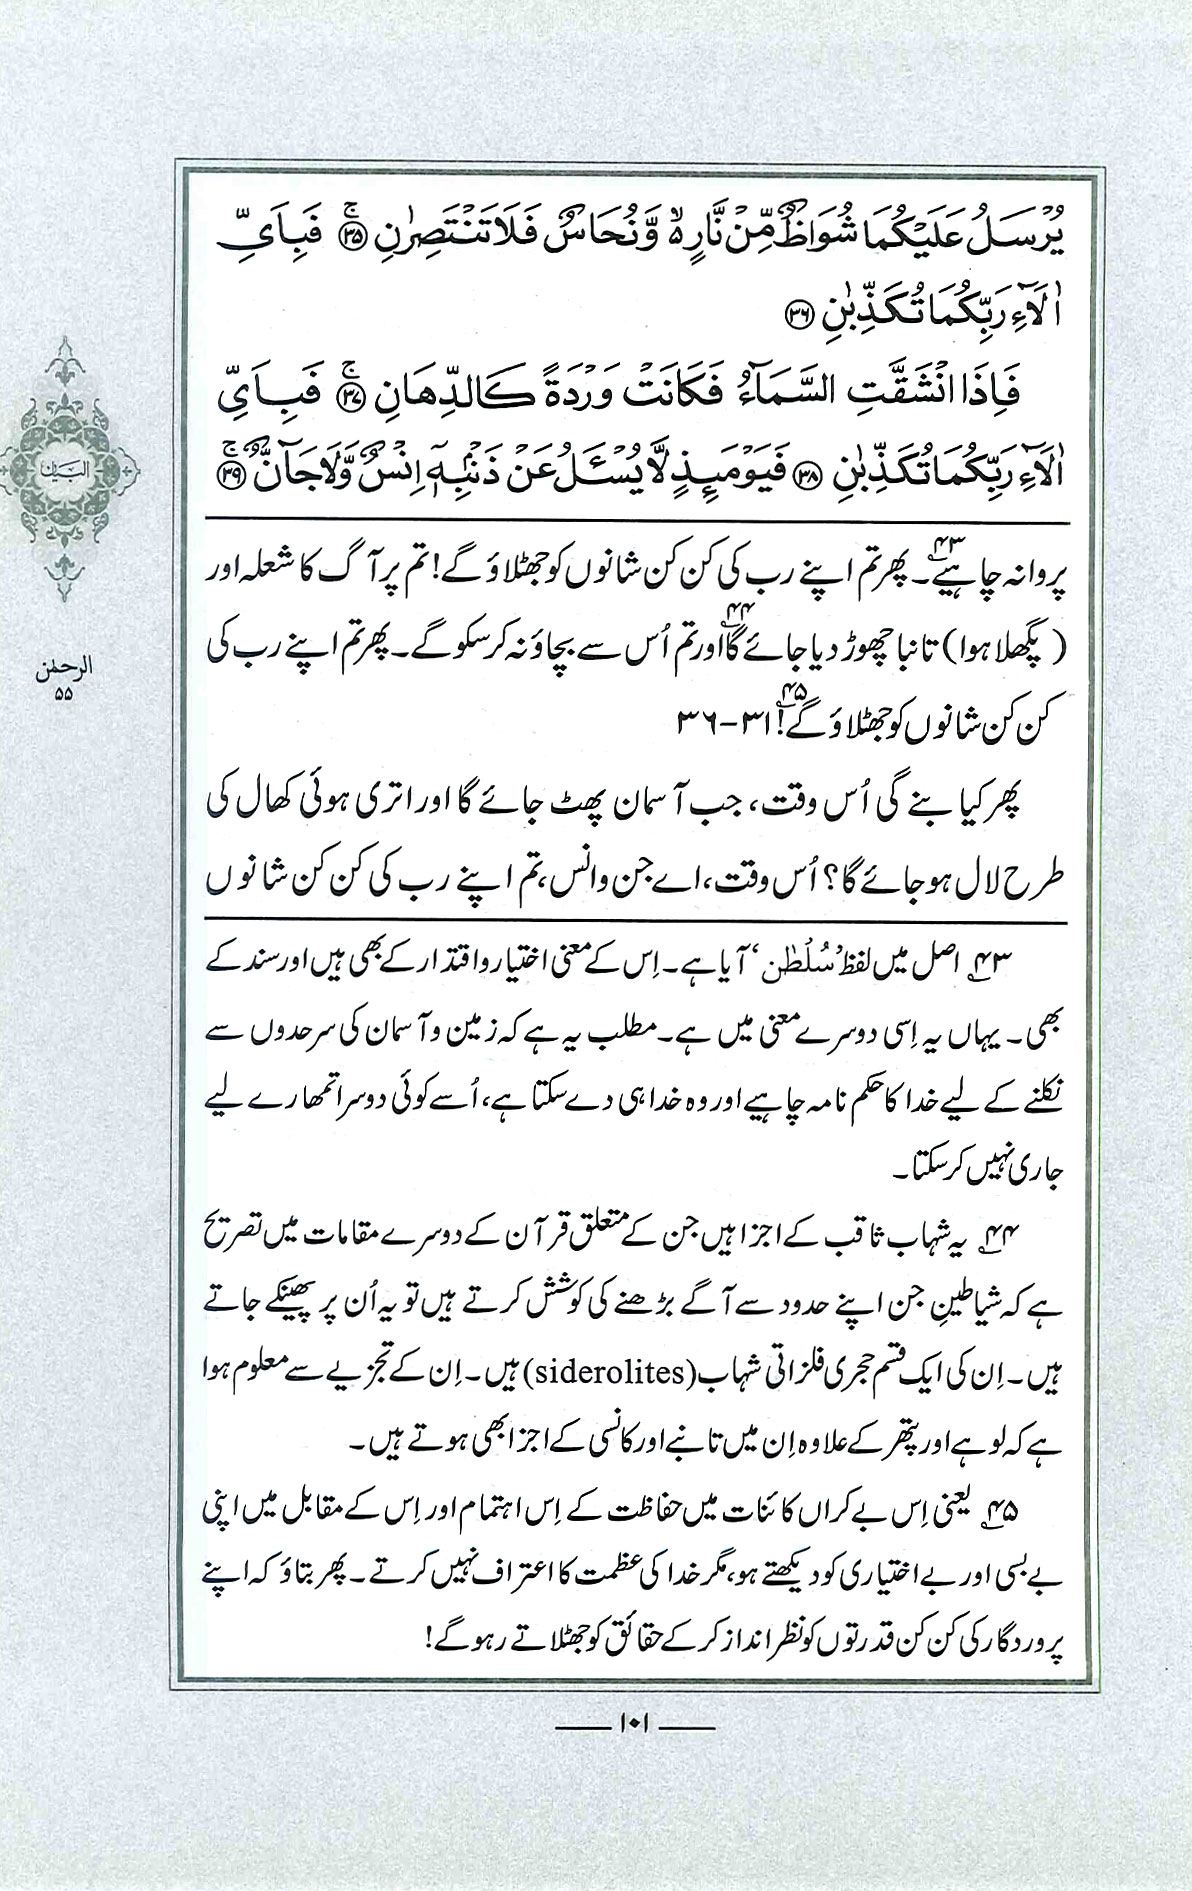 يُرْسَلُ عَلَيْكُمَا شُوَاظٌ مِّنْ نَّارٍ ۙ وَّنُحَاسٌ فَلَا تَنْتَصِرٰنِ ۚ﴿۳۵﴾ فَبِاَيِّ
اٰلَآءِ رَبِّكُمَا تُكَذِّبٰنِ ﴿۳۶﴾
فَاِذَا انْشَقَّتِ السَّمَآءُ فَكَانَتْ وَرْدَةً كَالدِّهَانِ ۚ﴿۳۷﴾ فَبِاَيِّ
اٰلَآءِ رَبِّكُمَا تُكَذِّبٰنِ ﴿۳۸﴾ فَيَوْمَئِذٍ لَّا يُسْـَٔلُ عَنْ ذَنْۢبِهٖٓ اِنْسٌ وَّلَا جَآنٌّ ۚ﴿۳۹﴾
البیان
الرحمٰن
۵۵
پروانہ چاہیے۴۳۔ پھر تم اپنے رب کی کن کن شانوں کو جھٹلاؤ گے! تم پر آگ کا شعلہ اور
(پگھلا ہوا) تانبا چھوڑ دیا جائے گا۴۴ اور تم اُس سے بچاؤ نہ کر سکو گے۔ پھر تم اپنے رب کی
کن کن شانوں کو جھٹلاؤ گے۴۵! ۳۱-۳۶
پھر کیا بنے گی اُس وقت، جب آسمان پھٹ جائے گا اور اتری ہوئی کھال کی
طرح لال ہو جائے گا؟ اُس وقت، اے جن و انس، تم اپنے رب کی کن کن شانوں
۴۳؎ اصل میں لفظ ’سُلْطٰن‘ آیا ہے۔ اِس کے معنی اختیار و اقتدار کے بھی ہیں اور سند کے
بھی۔ یہاں یہ اِسی دوسرے معنی میں ہے۔ مطلب یہ ہے کہ زمین و آسمان کی سرحدوں سے
نکلنے کے لیے خدا کا حکم نامہ چاہیے اور وہ خدا ہی دے سکتا ہے، اُسے کوئی دوسرا تمھارے لیے
جاری نہیں کر سکتا۔
۴۴؎ یہ شہاب ثاقب کے اجزا ہیں جن کے متعلق قرآن کے دوسرے مقامات میں تصریح
ہے کہ شیاطینِ جن اپنے حدود سے آگے بڑھنے کی کوشش کرتے ہیں تو یہ اُن پر پھینکے جاتے
ہیں۔ اِن کی ایک قسم حجری فلزاتی شہاب (siderolites) ہیں۔ اِن کے تجزیے سے معلوم ہوا
ہے کہ لوہے اور پتھر کے علاوہ اِن میں تانبے اور کانسی کے اجزا بھی ہوتے ہیں۔
۴۵؎ یعنی اِس بے کراں کائنات میں حفاظت کے اِس اہتمام اور اِس کے مقابل میں اپنی
بے بسی اور بے اختیاری کو دیکھتے ہو، مگر خدا کی عظمت کا اعتراف نہیں کرتے۔ پھر بتاؤ کہ اپنے
پروردگار کی کن کن قدرتوں کو نظر انداز کر کے حقائق کو جھٹلاتے رہو گے!
۱۰۱